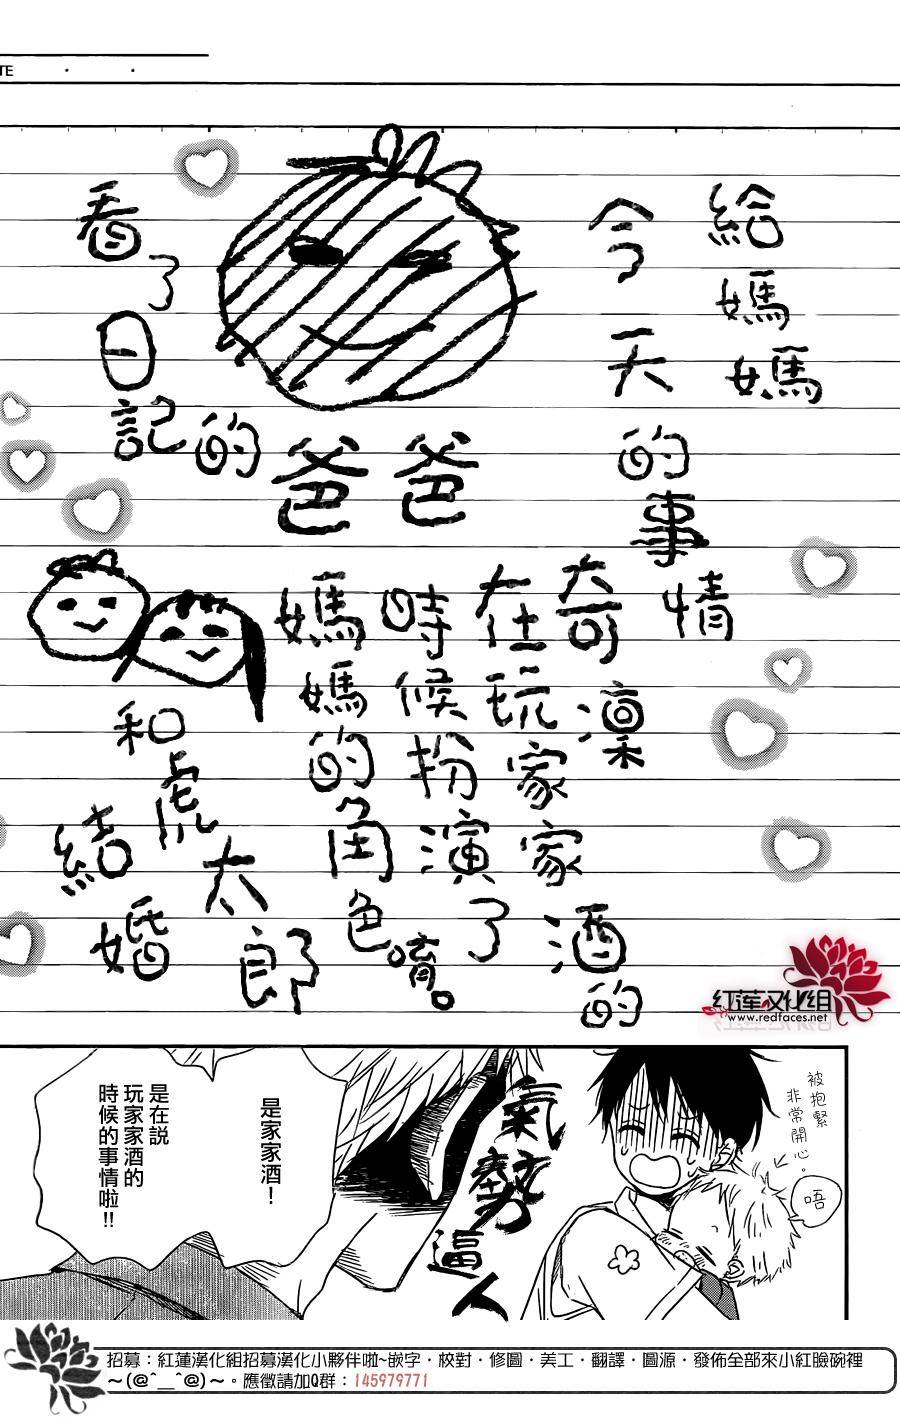 TE
給媽媽
今天的事情
奇凜
在玩家家酒的
時候扮演了
媽媽的角色唷。
爸爸
看了日記的
和虎太郎
結婚
紅蓮汉化組
www.redfaces.net
被抱緊
非常開心。
唔
氣勢逼人
是家家酒！
是在説
玩家家酒的
時候的事情啦!!
招募：紅蓮漢化組招募漢化小夥伴啦~嵌字・校對・修圖・美工・翻譯・圖源・發佈全部來小紅臉碗裡
～(@^__^@)～。應徵請加Q群：145979771